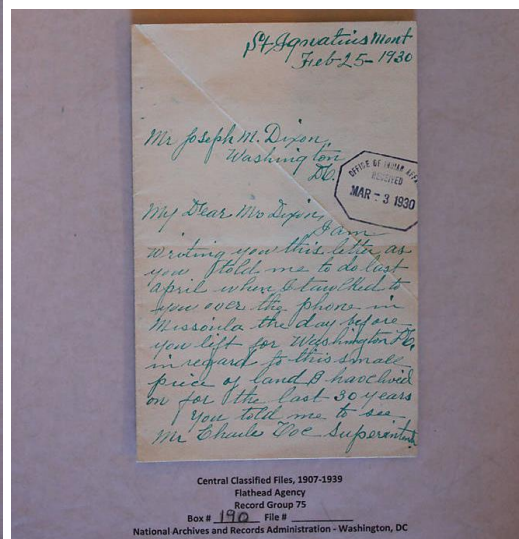 St Ignatius Mont
Feb 25- 1930
Mr Joseph M. Dixon,
Washington,
D.C.
OFFICE OF INDIAN AFFA
RECEIVED
MAR - 3 1930
My Dear Mr Dixon,
I am
writing you this letter as
you told me to do last
april when I tawlked to
you over the phone in
Missoula the day before
you lift for Washington D.C.
in regard to this small
piece of land I
on for the last 30 years
you told me to see
Mr Charles Coe Superintend
Central Classified Files, 1907-1939
Flathead Agency
Record Group 75
Box # 190 File #
National Archives and Records Administration - Washington, DC